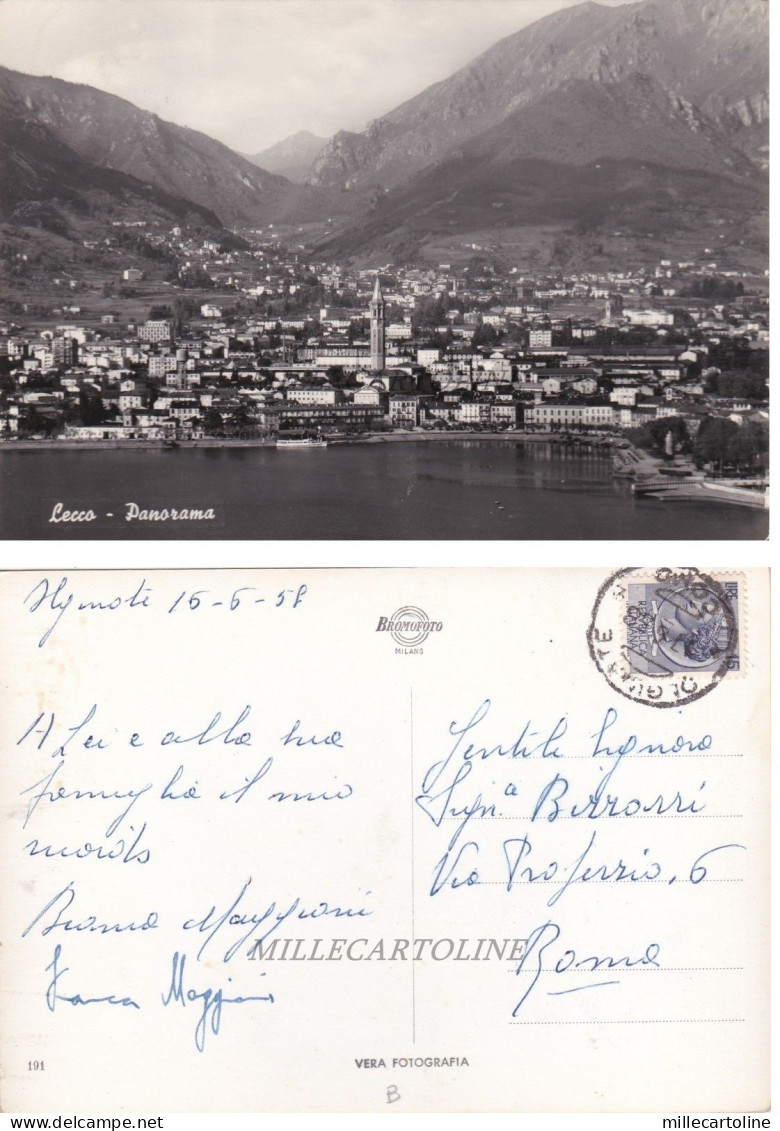 Lecco - Panorama
15-6-58
BROMOFOTO
MILANO
LIRE
15
A Lei e alla sua
famiglia il mio
ricordo
Bruna Maggioni
Franca Maggioni
Gentile Signora
Sign.a Bizzarri
Via Properzio, 6
Roma
MILLECARTOLINE
191
VERA FOTOGRAFIA
B
www.delcampe.net
millecartoline